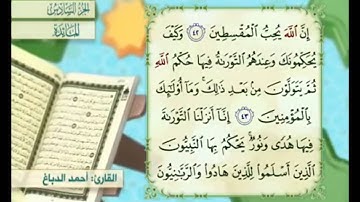 الجزء السادس
المائدة
إِنَّ ٱللَّهَ يُحِبُّ ٱلْمُقْسِطِينَ ٤٢ وَكَيْفَ
يُحَكِّمُونَكَ وَعِندَهُمُ ٱلتَّوْرَىٰةُ فِيهَا حُكْمُ ٱللَّهِ
ثُمَّ يَتَوَلَّوْنَ مِنۢ بَعْدِ ذَٰلِكَ ۚ وَمَآ أُو۟لَٰٓئِكَ
بِٱلْمُؤْمِنِينَ ٤٣ إِنَّآ أَنزَلْنَا ٱلتَّوْرَىٰةَ
فِيهَا هُدًى وَنُورٌ ۚ يَحْكُمُ بِهَا ٱلنَّبِيُّونَ
ٱلَّذِينَ أَسْلَمُوا۟ لِلَّذِينَ هَادُوا۟ وَٱلرَّبَّٰنِيُّونَ
القارئ: أحمد الدباغ